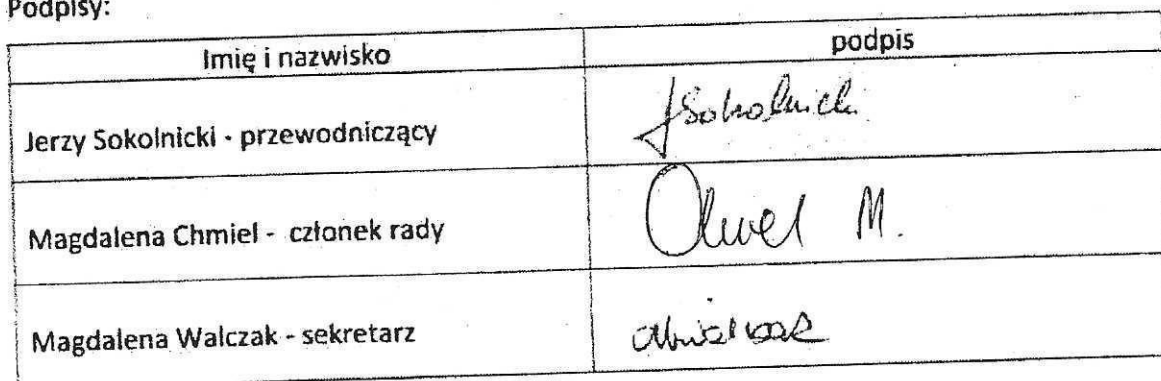 Podpisy:
Imię i nazwisko podpis
Jerzy Sokolnicki - przewodniczący JSokolnicki
Magdalena Chmiel - członek rady Chmiel M.
Magdalena Walczak - sekretarz